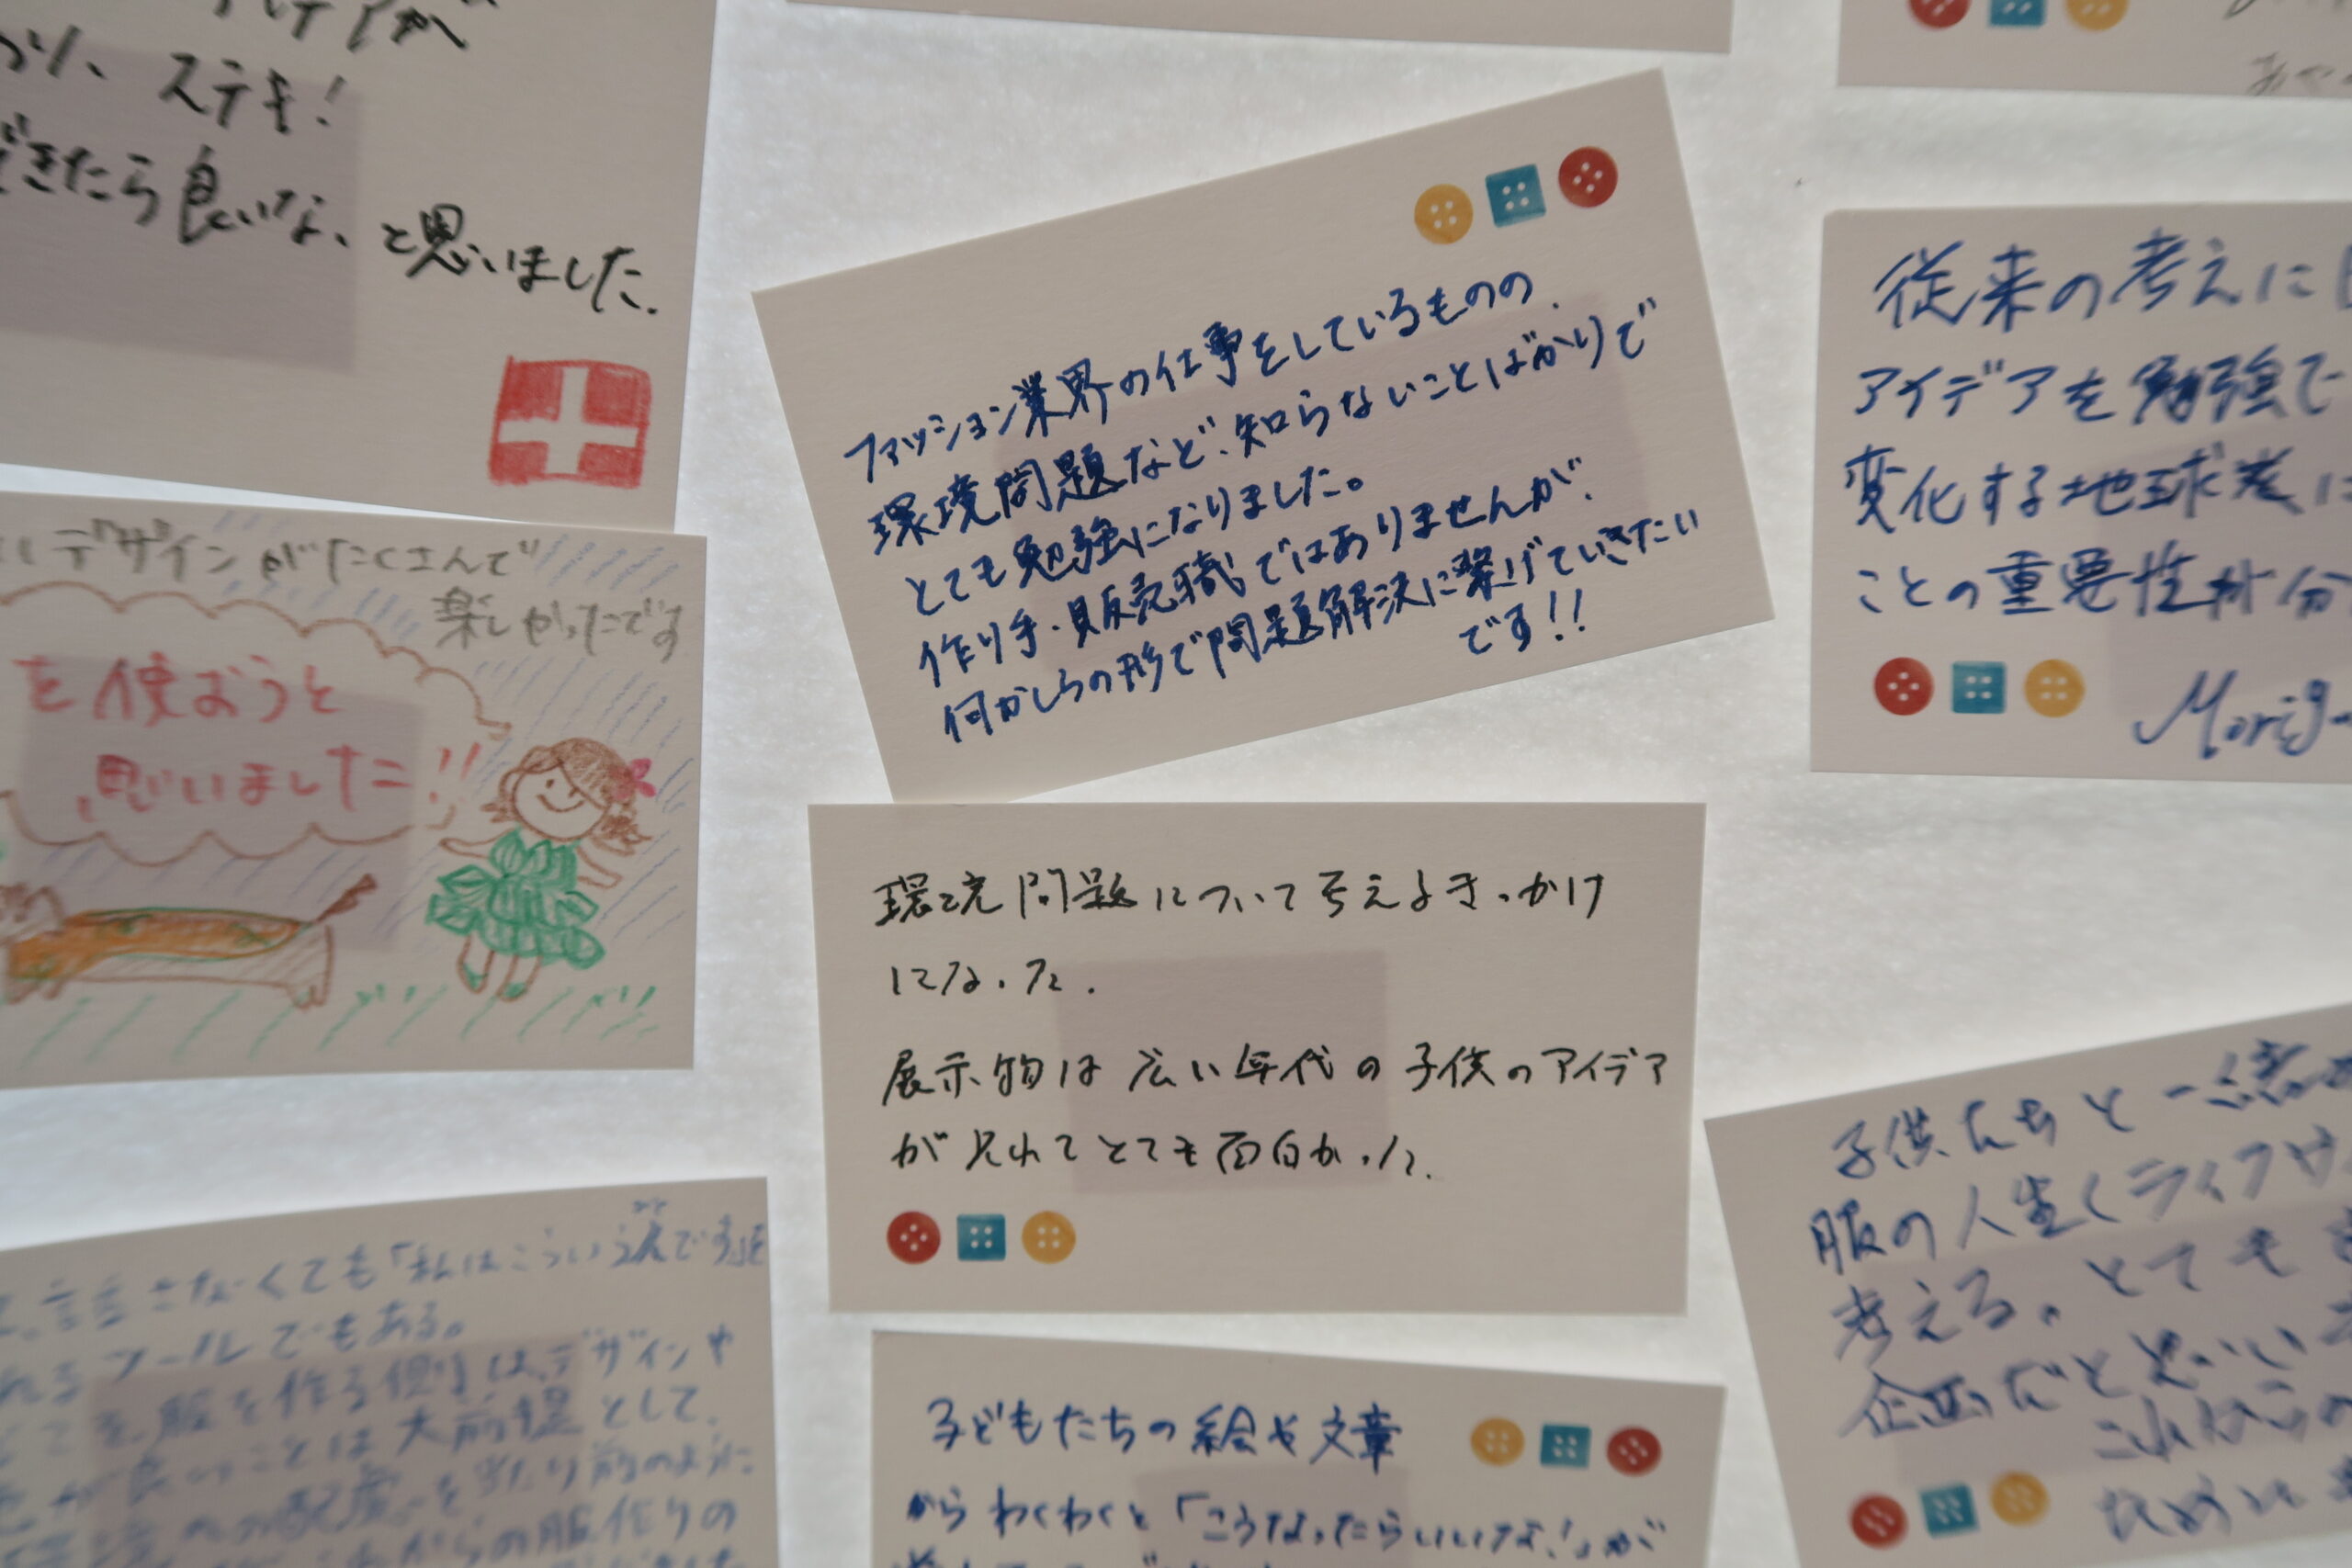 ステキ!
できたら良いな、と思いました.
ファッション業界の仕事をしているものの、
環境問題など、知らないことばかりで
とても勉強になりました。
作り手・販売職ではありませんが、
何かしらの形で問題解決に繋げていきたい
です!!
従来の考えに
アイデアを勉強で
変化する地球
ことの重要性が分
デザインがたくさんで
楽しかったです
を使おうと
思いました!!
環境問題について考えるきっかけ
になった.
展示物は広い年代の子供のアイデア
が見れてとても面白かった.
子供たちと一緒
服の人生(ライフ
考える。とても
企画だと思い
言葉にしなくても「私はこういう
ツールでもある。
服を作る側は、デザインや
が良いことは大前提として、
への配慮を当たり前のように
これからの服作りの
子どもたちの絵や文章
からわくわくと「こうなったらいいな!」が